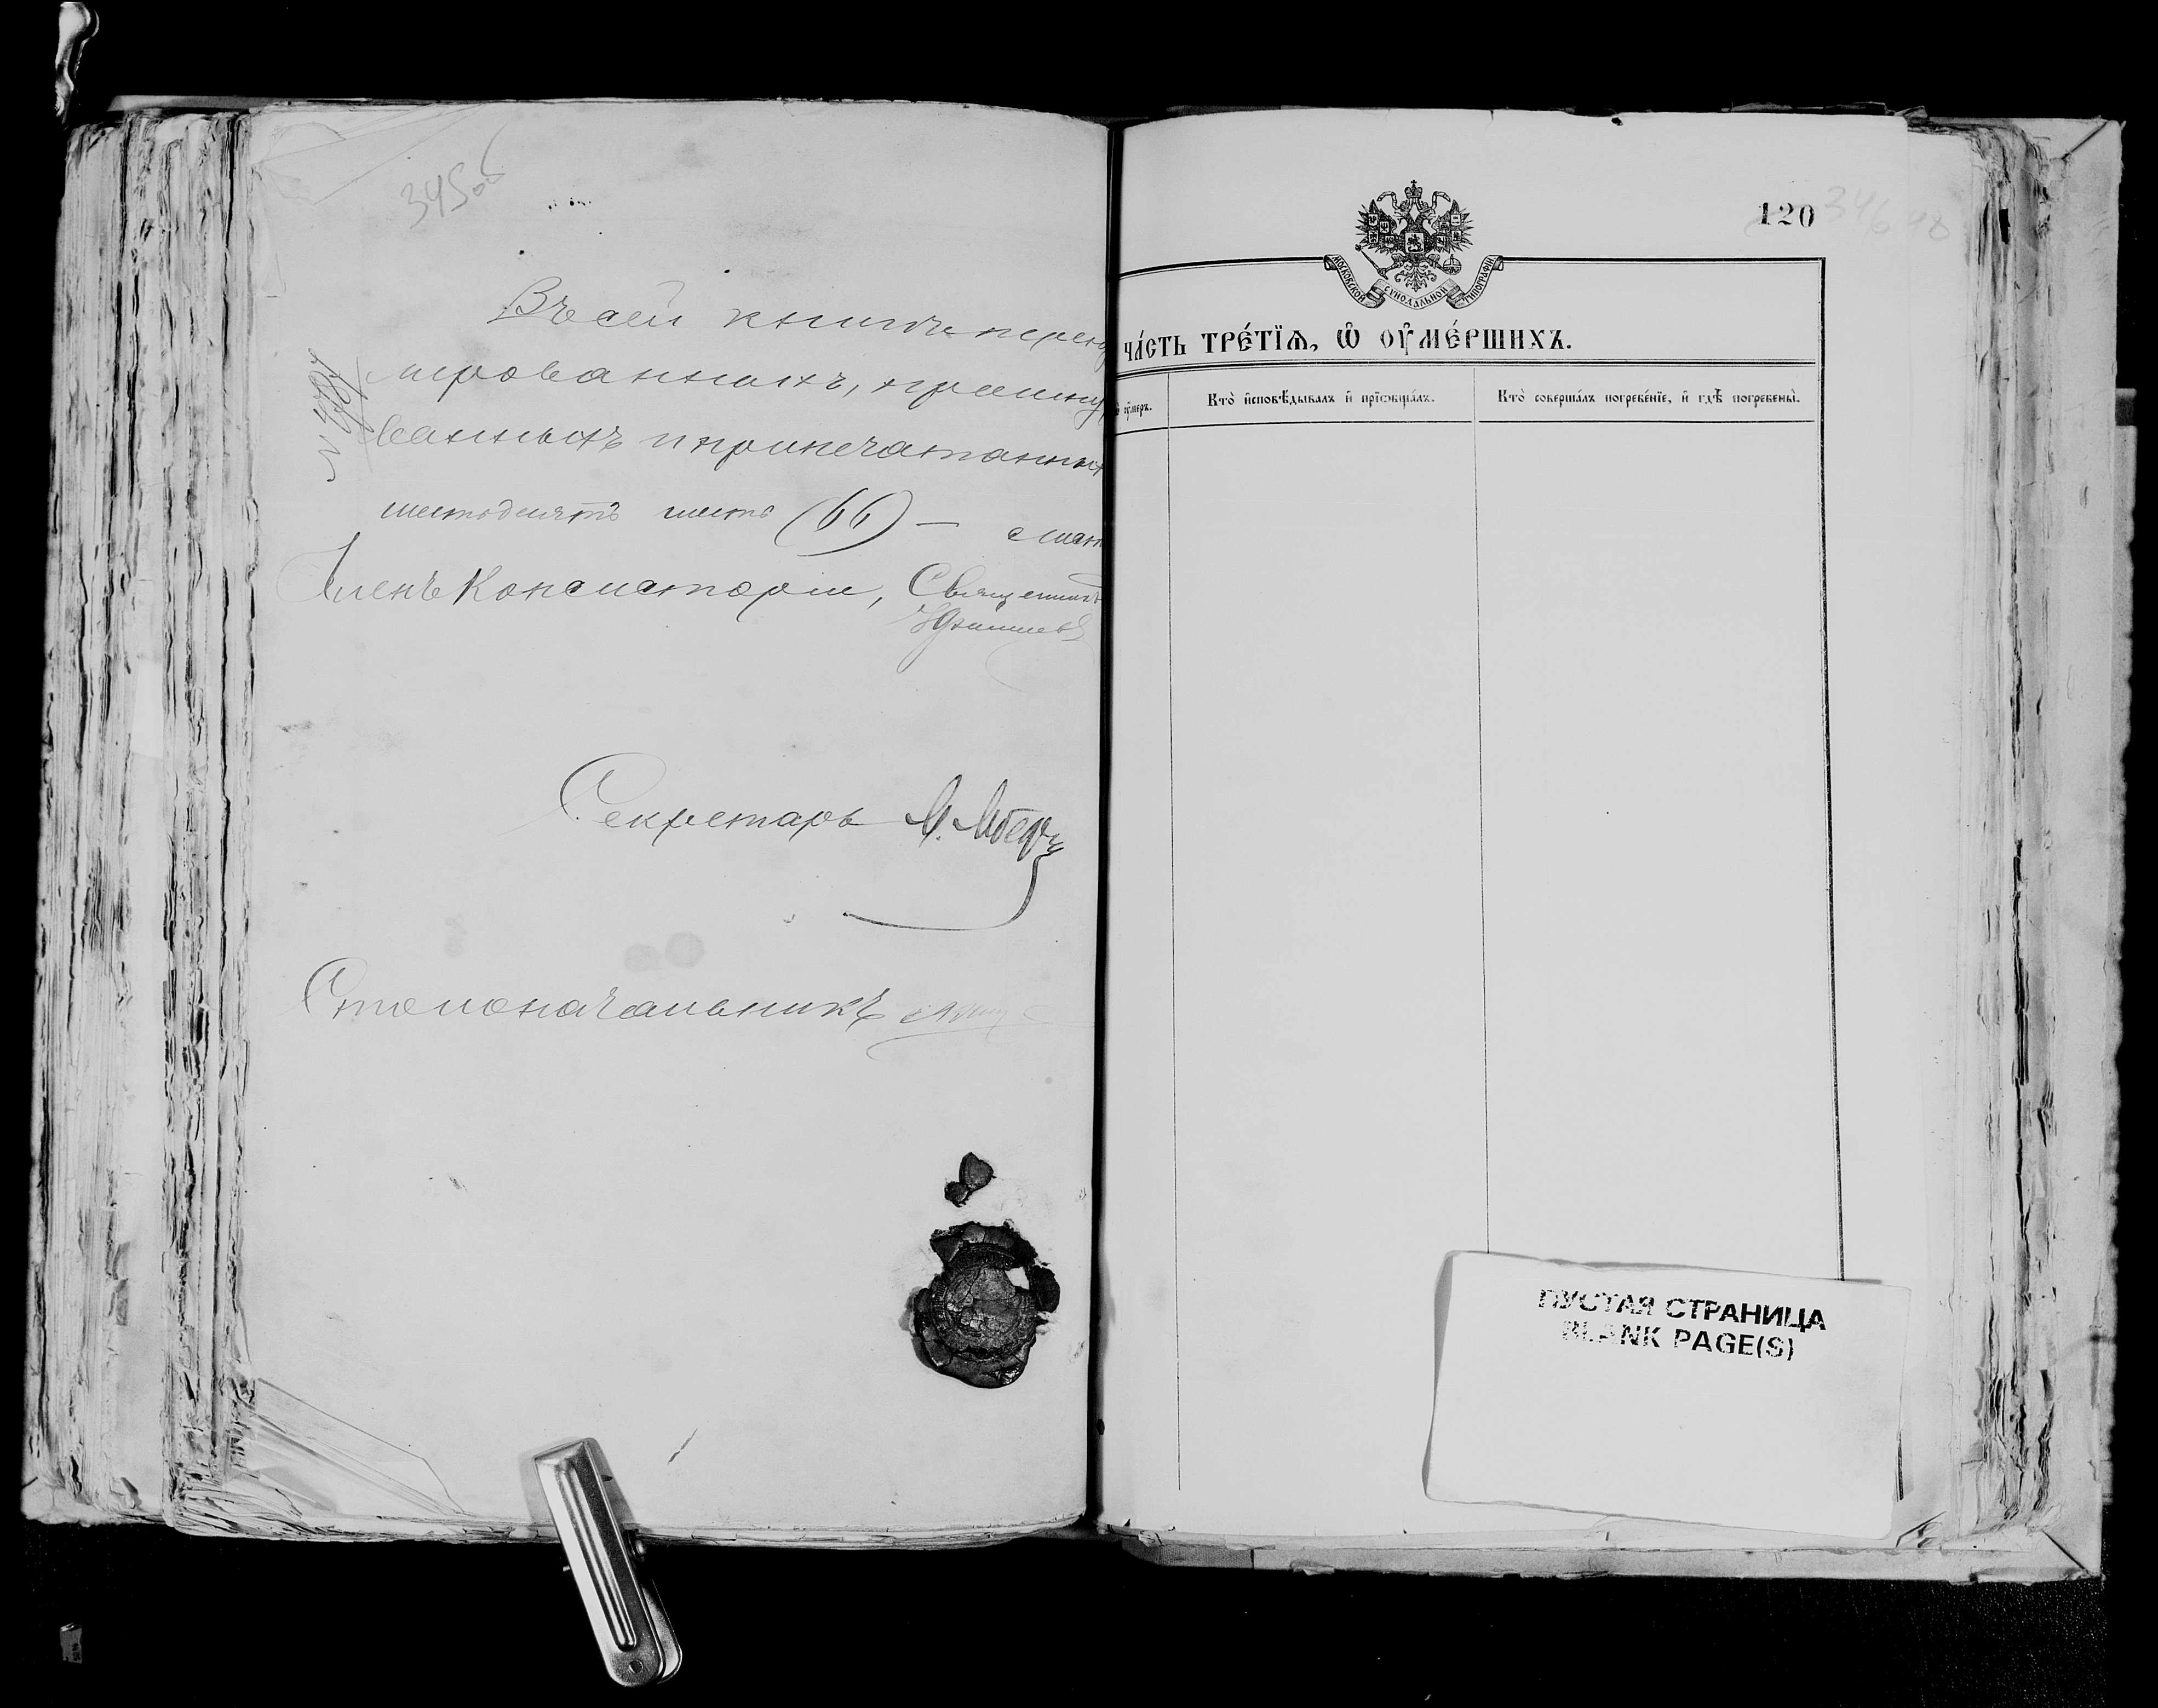 345об
Въ сей книгѣ перену
мерованныхъ, прошну
ванныхъ и припечатанных
шестьдесятъ шесть (66) — лист
Членъ Консисторіи, Священникъ
Секретарь
Столоначальникъ
120
346
МОСКОВСКОЙ СѴНОДАЛЬНОЙ ТИПОГРАФІИ
ЧА́СТЬ ТРЕ́ТЇѦ, Ѡ҆ ОУ҆МЕ́РШИХЪ.
оу҆́меръ. Кто̀ и҆сповѣ́дывалъ и҆ прїѡбща́лъ. Кто̀ соверша́лъ погребе́нїе, и҆ гдѣ̀ погребены̀.
ПУСТАЯ СТРАНИЦА
BLANK PAGE(S)